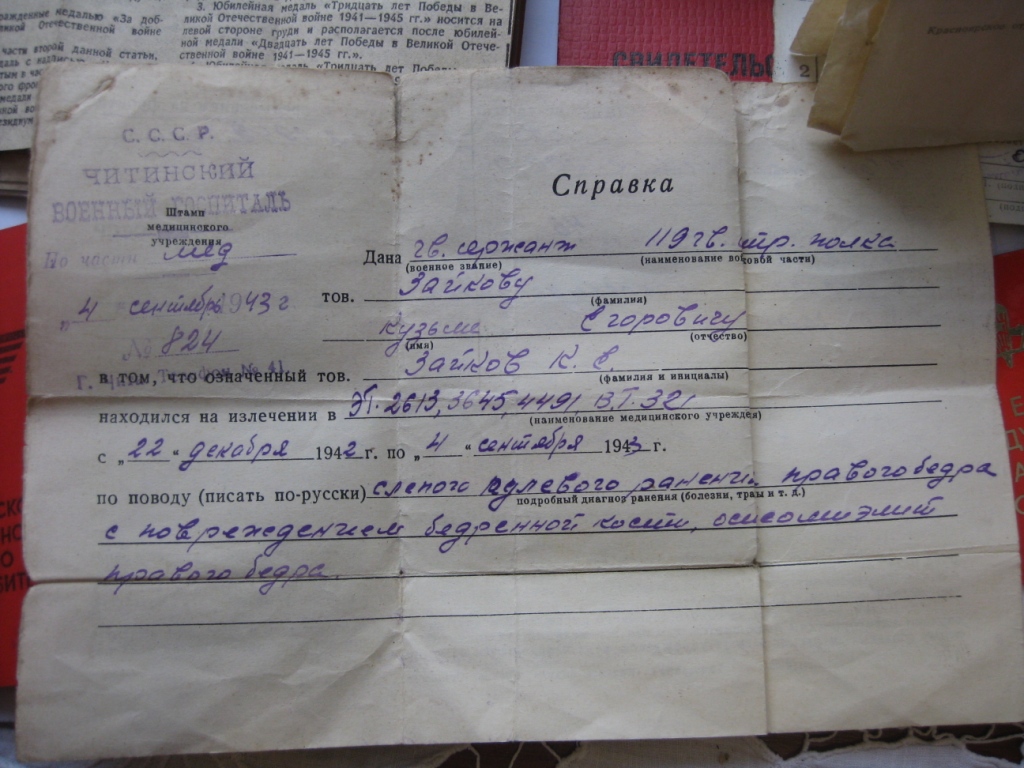 ражденные медалью «За доб-
ликой Отечественной войне
части второй данной статьи,
3. Юбилейная медаль «Тридцать лет Победы в Ве-
ликой Отечественной войне 1941—1945 гг.» носится на
левой стороне груди и располагается после юбилей-
ной медали «Двадцать лет Победы в Великой Отече-
ственной войне 1941—1945 гг.».
медаль «Тридцать лет Победы
СВИДЕТЕЛЬС
2
С. С. С. Р.
ЧИТИНСКИЙ
ВОЕННЫЙ ГОСПИТАЛЬ
Штамп
медицинского
учреждения
По части мед
„4 сентябрь 1943 г
№ 824
г. Чита Телефон № 41
Справка
Дана гв. сержант 119 гв. стр. полка
(военное звание) (наименование войсковой части)
тов. Зайкову
(фамилия)
Кузьме Егоровичу
(имя) (отчество)
в том, что означенный тов. Зайков К. Е.
(фамилия и инициалы)
находился на излечении в ЭГ. 2613, 3645, 4491 В.Г. 321
(наименование медицинского учреждения)
с „22“ декабря 1942 г. по „4“ сентября 1943 г.
по поводу (писать по-русски) слепого пулевого ранения правого бедра
подробный диагноз ранения (болезни, травмы и т. д.)
с повреждением бедренной кости, остеомиэлит
правого бедра.